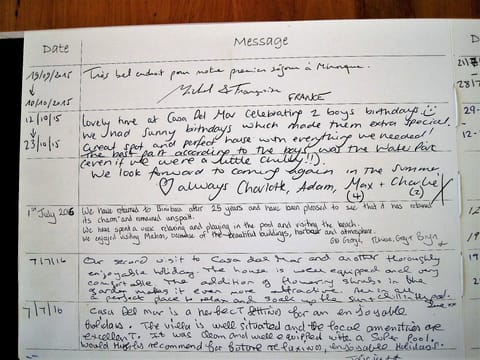 Date Message
19/09/2015 Très bel endroit pour notre premier séjour à Minorque.
Michel & Françoise
10/10/2015 FRANCE
12/10/15 Lovely time at Casa Del Mar celebrating 2 boys birthdays.
We had sunny birthdays which made them extra special.
23/10/15 Great spot and perfect house with everything we needed!
The best part according to the boys was the Water Park
(even if we were a little chilly!!).
We look forward to coming again in the summer
always Charlotte, Adam, Max + Charlie X
(4) (2)
1st July 2016 We have returned to Binibeca after 25 years and have been pleased to see that it has retained
its charm and remained unspoilt.
We have spent a week relaxing and playing in the pool and visiting the beach.
We enjoyed visiting Mahon, because of the beautiful buildings, harbour and atmosphere.
7/7/16 Our second visit to Casa del Mar and another thoroughly
enjoyable holiday. The house is well equipped and very
comfortable. The addition of flowering shrubs in the
garden makes it even more attractive.
a perfect place to relax and soak up the sun + chill in the pool.
7/7/16 Casa Del Mar is a perfect setting for an enjoyable
holidays. The villa is well situated and the local amenities are
excellent. It was clean and well equipped with a super pool.
Would highly recommend for future relaxing enjoyable holidays.